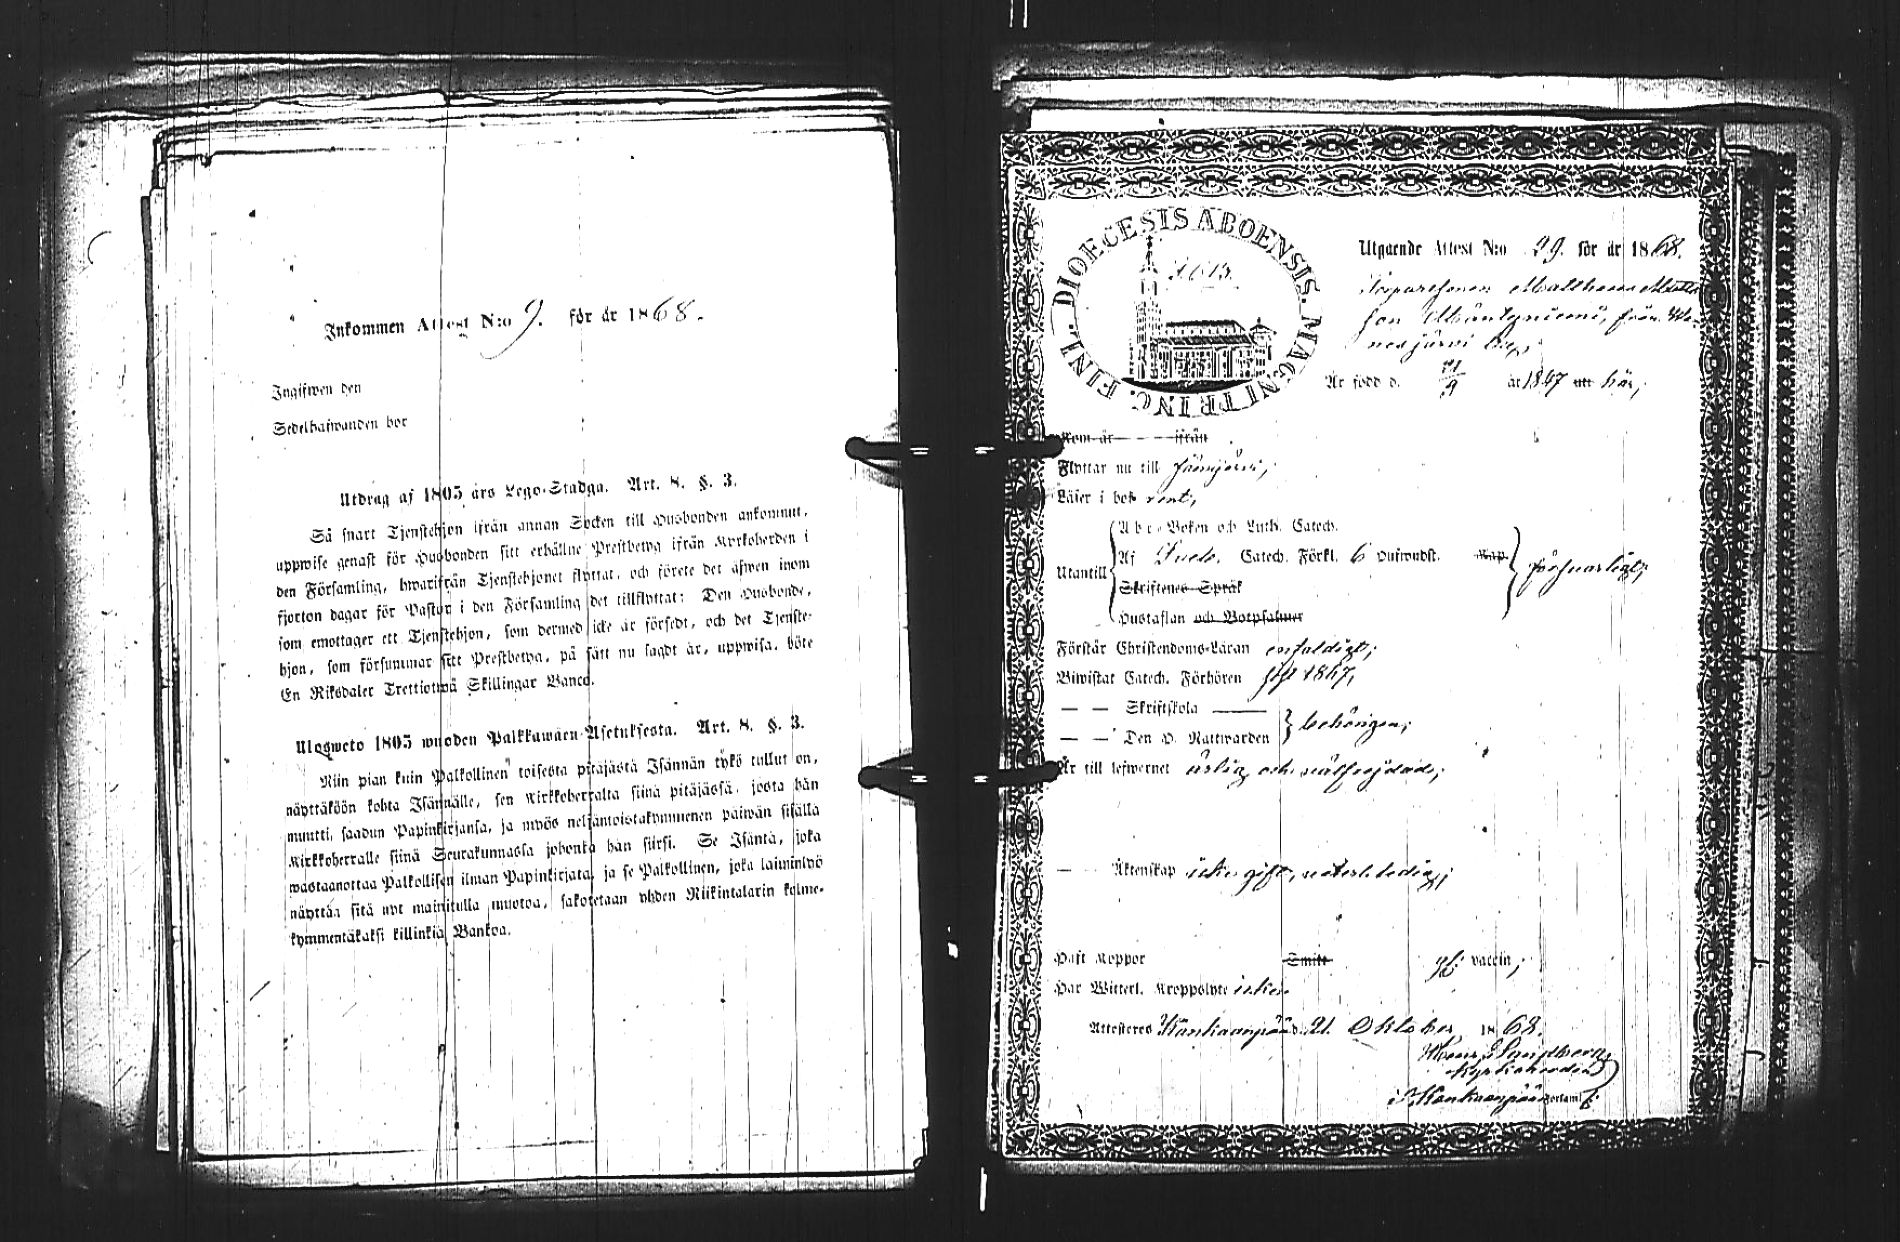 Inkommen Attest N:o 9. för år 1868.
Ingifwen den
Sedelhafwanden bor
Utdrag af 1805 års Lego-Stadga. Art. 8. §. 3.
Så snart Tjenstehjon ifrån annan Socken till Husbonden ankommit,
uppwise genast för Husbonden sitt erhållne Prestbetyg ifrån Kyrkoherden i
den Församling, hwarifrån Tjenstehjonet flyttat, och förete det äfwen inom
fjorton dagar för Pastor i den Församling det tillflyttat: Den Husbonde,
som emottager ett Tjenstehjon, som dermed icke är försedt, och det Tjenste-
hjon, som försummar sitt Prestbetyg, på sätt nu sagdt är, uppwisa, böte
En Riksdaler Trettiotwå Skillingar Banco.
Ulosweto 1805 wuoden Palkkawäen-Asetuksesta. Art. 8. §. 3.
Niin pian kuin Palkollinen toisesta pitäjästä Isännän tykö tullut on,
näyttäköön kohta Isännälle, sen Kirkkoherralta siinä pitäjässä, josta hän
muutti, saadun Papinkirjansa, ja myös neljäntoistakymmenen päiwän sisällä
Kirkkoherralle siinä Seurakunnassa johonka hän siirsi. Se Isäntä, joka
wastaanottaa Palkollisen ilman Papinkirjata, ja se Palkollinen, joka laiminlyö
näyttää sitä nyt mainitulla muotoa, sakotetaan yhden Riikintalarin kolme-
kymmentäkaksi killinkiä Bankoa.
DIOECESIS ABOENSIS. MAGNI PRINC. FINL.
Utgående Attest N:o 29. för år 1868.
Torparesonen Matthias Matts
son Mäntyniemi, från We-
nesjärvi by,
Är född d. 21/9 år 1847 att här,
Kom år - - - ifrån
Flyttar nu till Jämijärvi,
Läser i bok rent,
Abc-Boken och Luth. Catech.
Utantill Af Sveb. Catech. Förkl. 6 Hufwudst. Kap. försvarligt,
Skriftenes Språk
Hustaflan och Botpsalmer
Förstår Christendoms-Läran enfaldigt,
Biwistat Catech. Förhören 1867,
— — Skriftskola ——
— — Den H. Nattwarden behörigen,
Är till lefwernet ärlig och välfrejdad,
— — Äktenskap icke gift, utan ledig,
Haft Koppor Smitt vaccin,
Har Witterl. Kroppslyte icke.
Attesteras Kankaanpää d. 21. Oktober 1868.
Kyrkoherde
i Kankaanpää Församl.